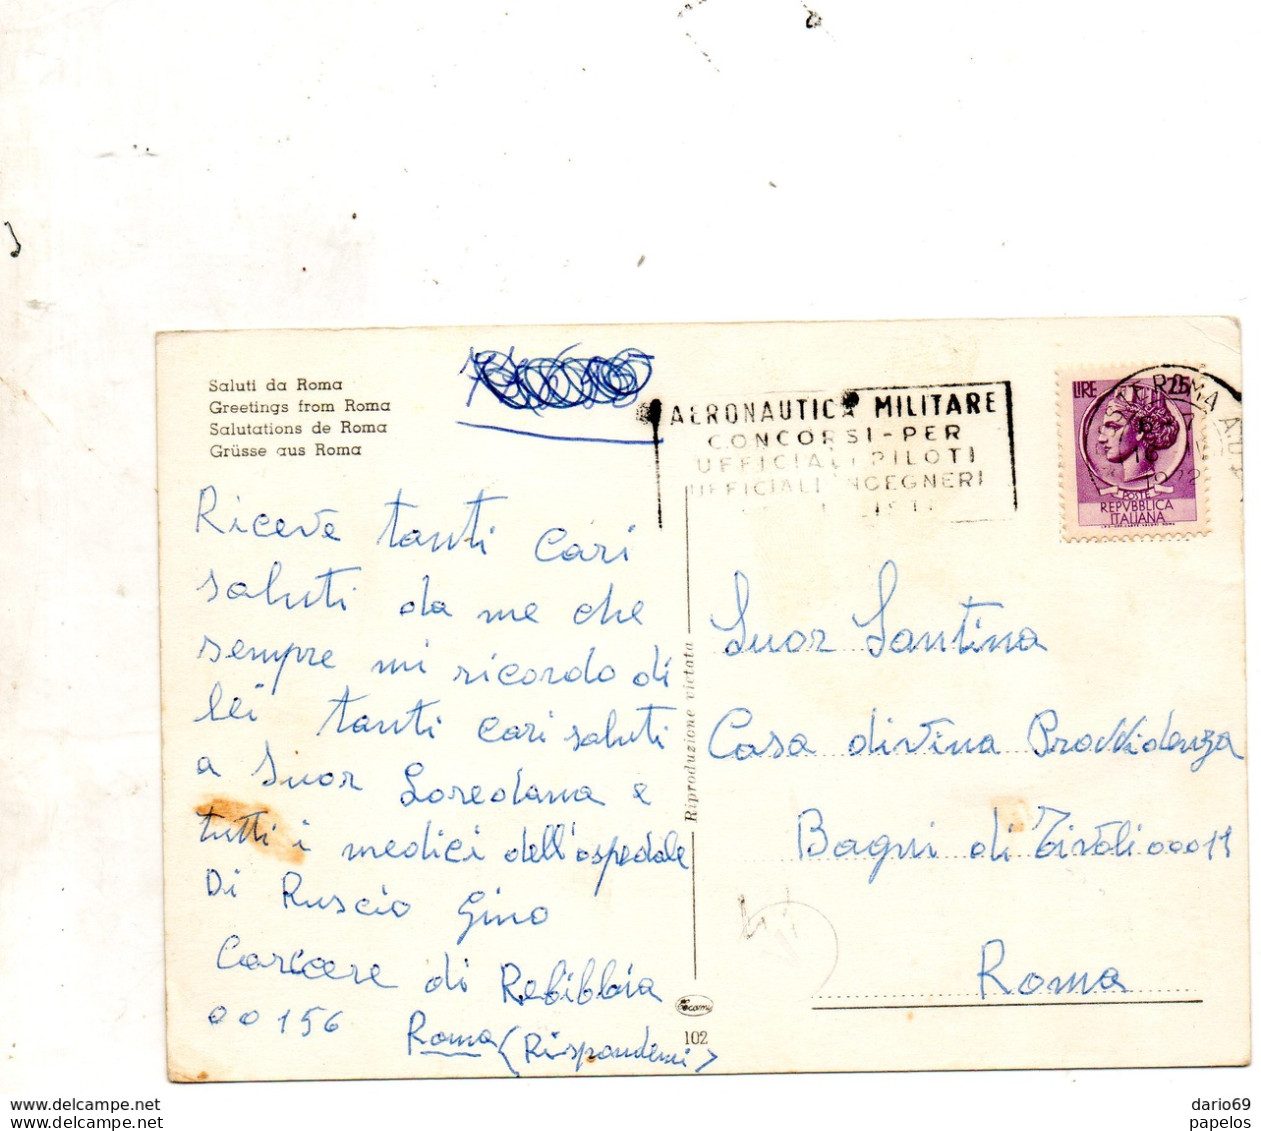 Saluti da Roma
Greetings from Roma
Salutations de Roma
Grüsse aus Roma
AERONAUTICA MILITARE
CONCORSI-PER
UFFICIALI PILOTI
UFFICIALI INGEGNERI
LIRE 25
POSTE
REPVBBLICA
ITALIANA
ROMA
16
1972
Riceve tanti cari
saluti da me che
sempre mi ricordo di
lei tanti cari saluti
a Suor Loredana e
tutti i medici dell'ospedale
Di Ruscio Gino
Carcere di Rebibbia
00156
Roma (Rispondemi)
Riproduzione vietata
102
Suor Santina
Casa divina Provvidenza
Bagni di Tivoli 00011
Roma
www.delcampe.net
www.delcampe.net
dario69
papelos